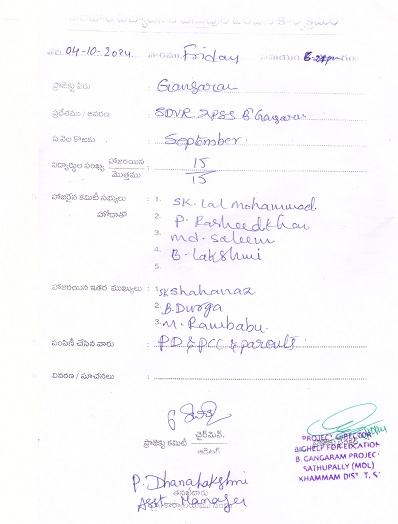 తేది. 04-10-2024 వారము Friday సమయం
ప్రాజెక్టు పేరు : Gangaram
ప్రదేశము / ఆవరణ : SDVR ZPSS B Gangaram
ఏ నెల కొరకు : September.
విద్యార్థుల సంఖ్య హాజరయిన / మొత్తము : 15 / 15
హాజరైన కమిటీ సభ్యులు హోదాతో : 1. SK. Lal mohammad.
2. P. Rasheed khan
3. md. Saleem
4. B. Lakshmi
5.
హాజరయిన ఇతర ముఖ్యులు : 1. SK Shahanaz
2. B. Durga
3. M. Rambabu.
పంపిణీ చేసిన వారు : PD & PCC & parents
వివరణ / సూచనలు :
ప్రాజెక్టు కమిటీ ఛైర్మెన్.
P. Dhanalakshmi
Asst. Manager
PROJECT DIRECTOR
BIGHELP FOR EDCATION
B. GANGARAM PROJEC
SATHUPALLY (MDL)
KHAMMAM DIST. T. S